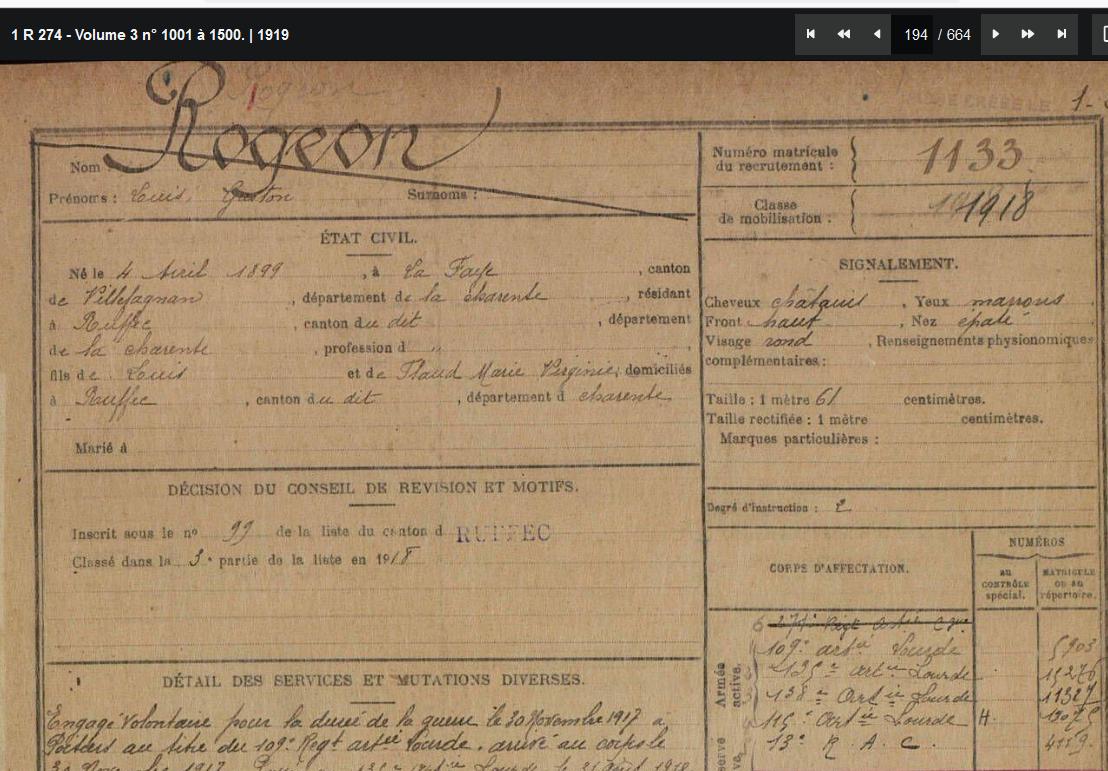 1 R 274 - Volume 3 n° 1001 à 1500. | 1919
194 / 664
Rogeon
1-
Rogeon
Nom :
Prénoms : Louis, Gaston Surnoms :
Numéro matricule
du recrutement : 1133
Classe
de mobilisation : 1918
ÉTAT CIVIL.
Né le 4 Avril 1899, à La Faye, canton
de Villefagnan, département de la charente, résidant
à Ruffec, canton du dit, département
de la charente, profession d „
fils de Louis et de Flaud Marie Virginie, domiciliés
à Ruffec, canton du dit, département d charente
Marié à
SIGNALEMENT.
Cheveux châtains, Yeux marrons
Front haut, Nez épaté
Visage rond, Renseignements physionomiques
complémentaires :
Taille : 1 mètre 61 centimètres.
Taille rectifiée : 1 mètre centimètres.
Marques particulières :
Degré d'instruction : 2
DÉCISION DU CONSEIL DE REVISION ET MOTIFS.
Inscrit sous le n° 99 de la liste du canton d RUFFEC
Classé dans la 3e partie de la liste en 1918
CORPS D'AFFECTATION.
NUMÉROS
AU
CONTRÔLE
spécial.
MATRICULE
OU AU
répertoire.
Armée
active.
109e artie Lourde 5903
135e artie Lourde 15276
138e Artie Lourde 11327
115e Artie Lourde H.
13e R. A. C.
DÉTAIL DES SERVICES ET MUTATIONS DIVERSES.
Engagé Volontaire pour la durée de la guerre le 30 Novembre 1917 à
Poitiers au titre du 109e Regt artie Lourde. arrivé au corps le
30 Novembre 1917.